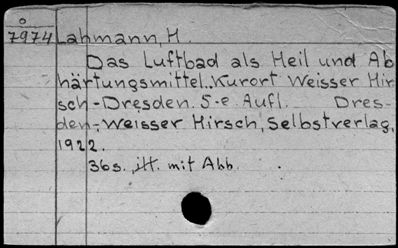 o
7974 Lahmann, H.
Das Luftbad als Heil und Ab
härtungsmittel.. Kurort Weisser Hir
sch-Dresden. 5-e Aufl. Dres-
den,-Weisser Hirsch, Selbstverlag,
1922.
36s., ill. mit Abb.